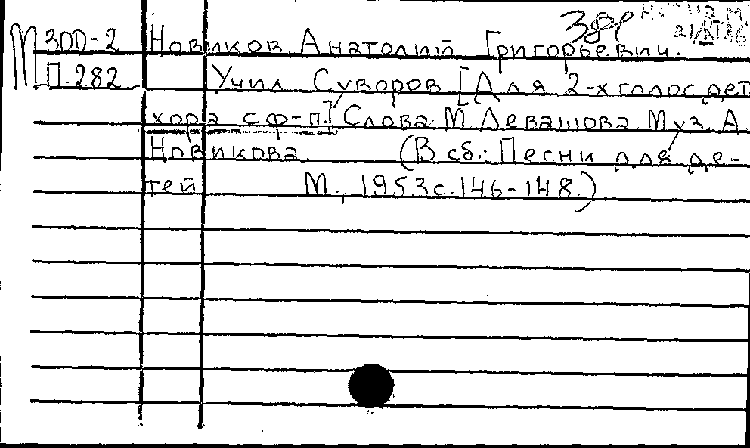 М 300-2 Новиков Анатолий Григорьевич.
П-282 Учил Суворов [Для 2-хголос дет
хора с ф-п.] Слова М. Левашова Муз. А.
Новикова (В сб.: Песни для де-
тей М., 1953 с. 146-148.)